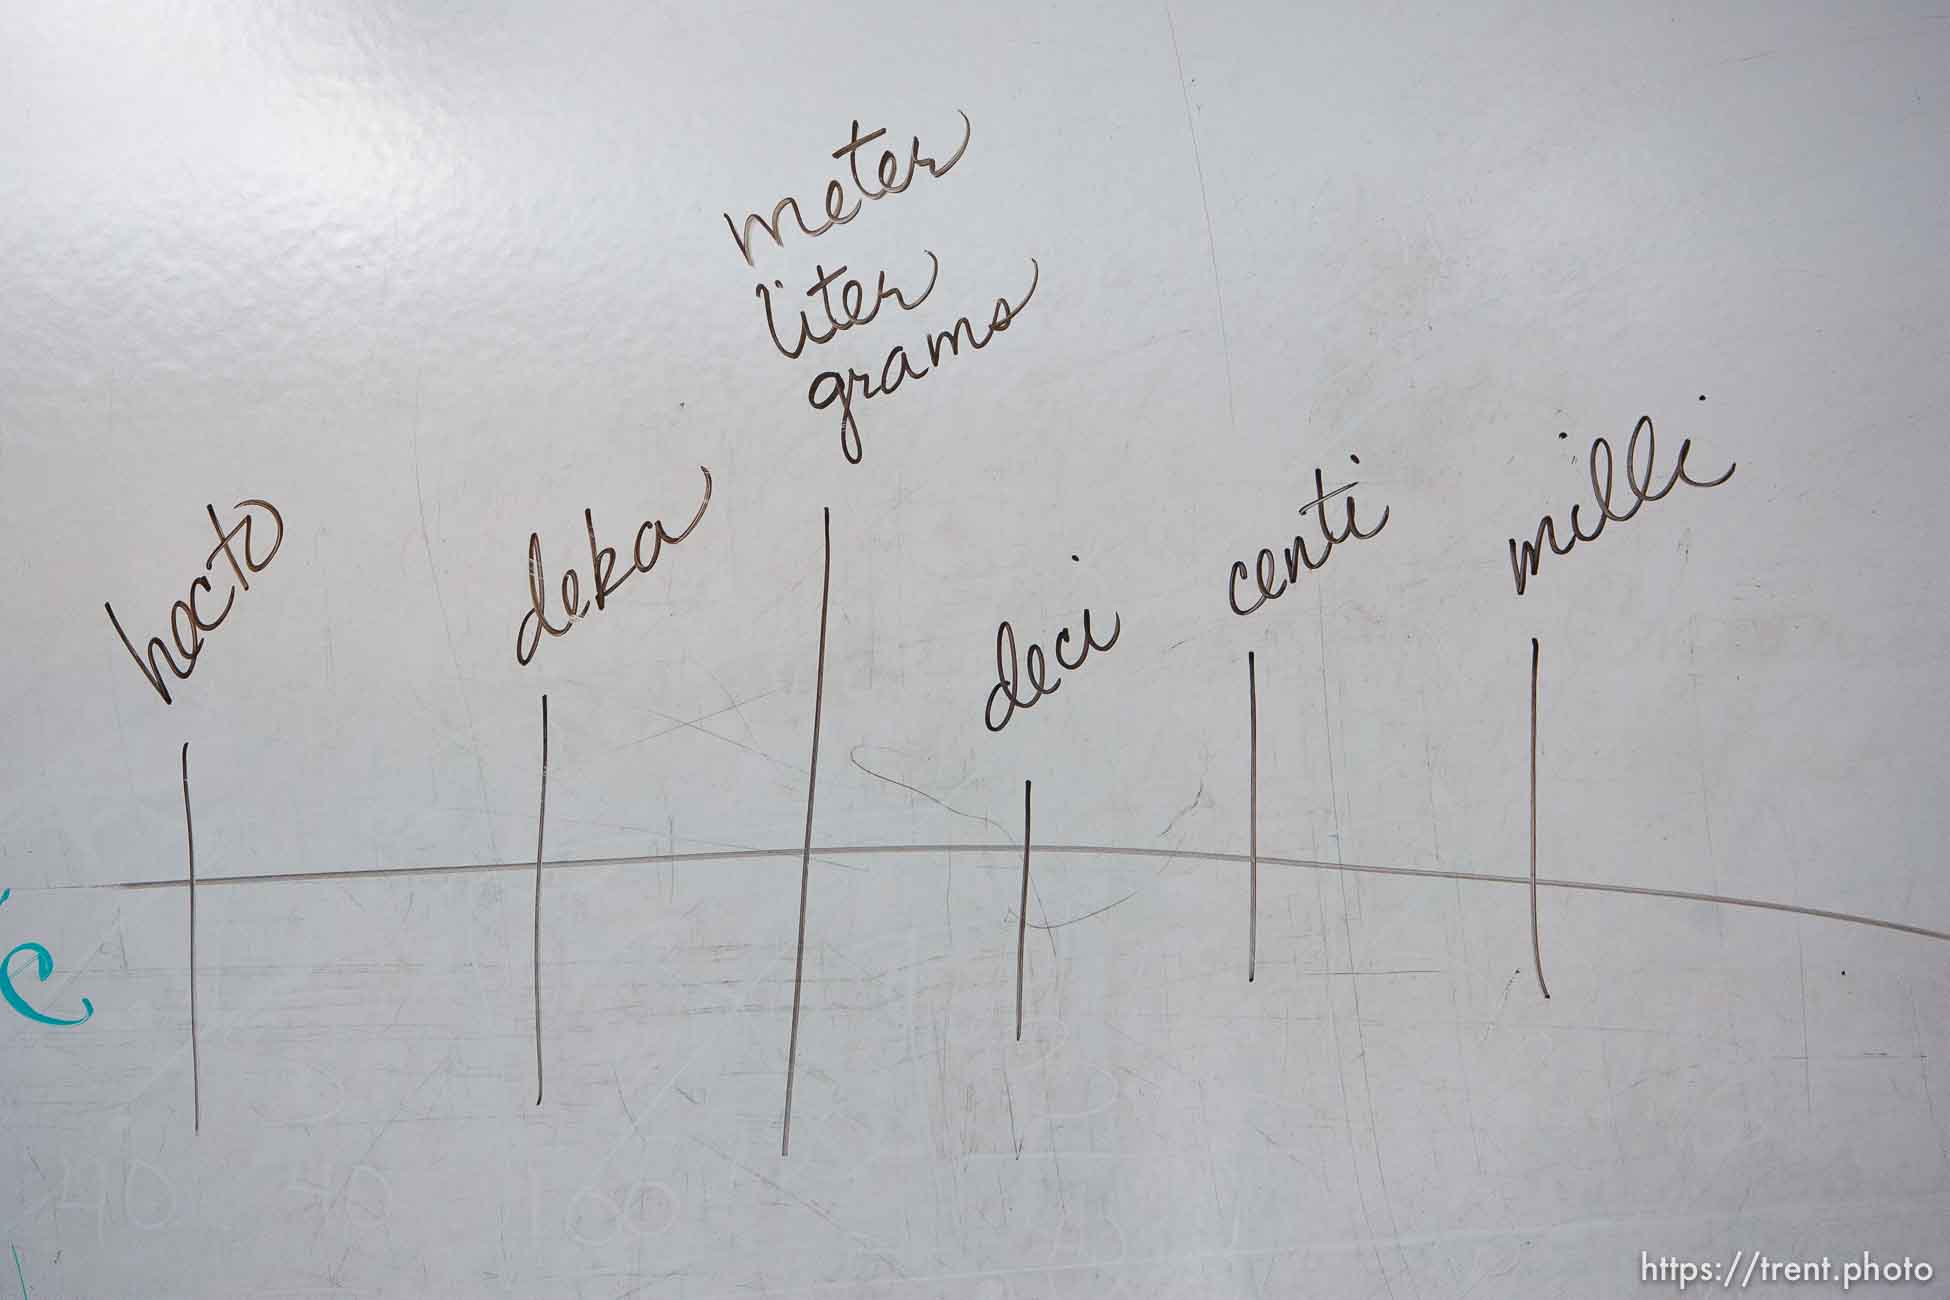 meter
liter
grams
hecto deka deci centi milli
e
40 40 100
https://trent.photo